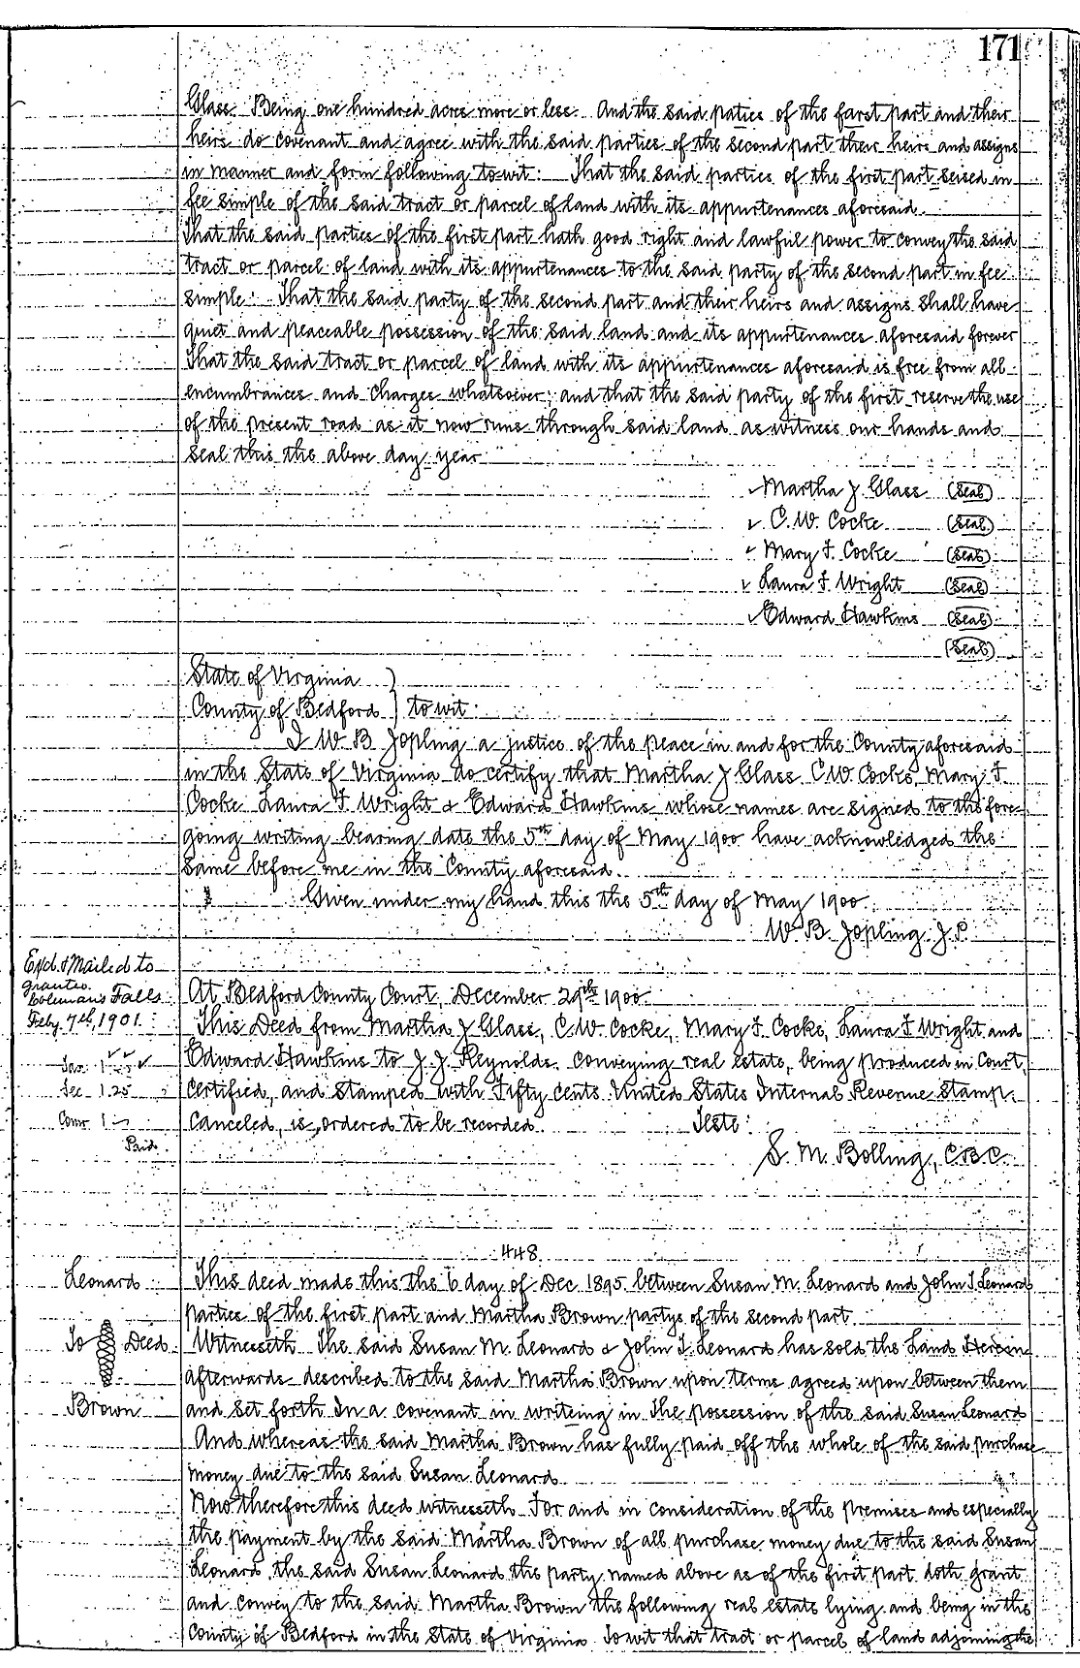 171
Glass. Being one hundred acres more or less. And the said paties of the farst part and their
heirs do covenant and agree with the said parties of the second part their heirs and assigns
in manner and form following to-wit: That the said parties of the first part seised in
fee simple of the said tract or parcel of land with its appurtenances aforesaid.
That the said parties of the first part hath good right and lawful power to convey the said
tract or parcel of land with its appurtenances to the said party of the second part in fee
simple: That the said party of the second part and their heirs and assigns shall have
quiet and peaceable possession of the said land and its appurtenances aforesaid forever
That the said tract or parcel of land with its appurtenances aforesaid is free from all
encumbrances and charges whatsoever; and that the said party of the first reserve the use
of the present road as it now runs through said land as witness our hands and
seal this the above day year
Martha J Glass (Seal)
C. W. Cocke (Seal)
Mary F. Cocke (Seal)
Laura F. Wright (Seal)
Edward Hawkins (Seal)
(Seal)
State of Virginia }
County of Bedford } to wit:
I W. B Jopling a justice of the peace in and for the County aforesaid
in the State of Virginia do certify that Martha J Glass C W. Cocke, Mary F.
Cocke Laura F. Wright & Edward Hawkins whose names are signed to the fore-
going writing bearing date the 5th day of May 1900 have acknowledged the
same before me in the County aforesaid.
Given under my hand this the 5th day of May 1900.
W. B. Jopling J. P.
Exd. & Mailed to
grantee.
Coleman's Falls
Feby. 7th, 1901.
At Bedford County Court, December 29th 1900.
This Deed from Martha J Glass, C. W. Cocke, Mary F. Cocke, Laura F Wright and
Edward Hawkins to J. J. Reynolds conveying real estate, being produced in Court,
Tax 1
certified, and stamped with Fifty cents United States Internal Revenue Stamp,
1.25
canceled, is ordered to be recorded. Teste:
Paid.
S. M. Bolling, C. B. C.
448
Leonard
To Deed
Brown
This deed made this the 6 day of Dec 1895 between Susan M. Leonard and John T. Leonard
parties of the first part and Martha Brown partys of the second part.
Witnesseth The said Susan M. Leonard & John T. Leonard has sold the Land Herein
afterwards described to the said Martha Brown upon terms agreed upon between them
and set forth In a covenant in writeing in The possession of the said Susan Leonard
And whereas the said Martha Brown has fully paid off the whole of the said purchase
money due to the said Susan Leonard
Now therefore this deed witnesseth For and in consideration of the premises and especially
the payment by the said Martha Brown of all purchase money due to the said Susan
Leonard the said Susan Leonard the party named above as of the first part doth grant
and convey to the said Martha Brown the following real estate lying and being in the
County of Bedford in the State of Virginia To wit that tract or parcel of land adjoining the